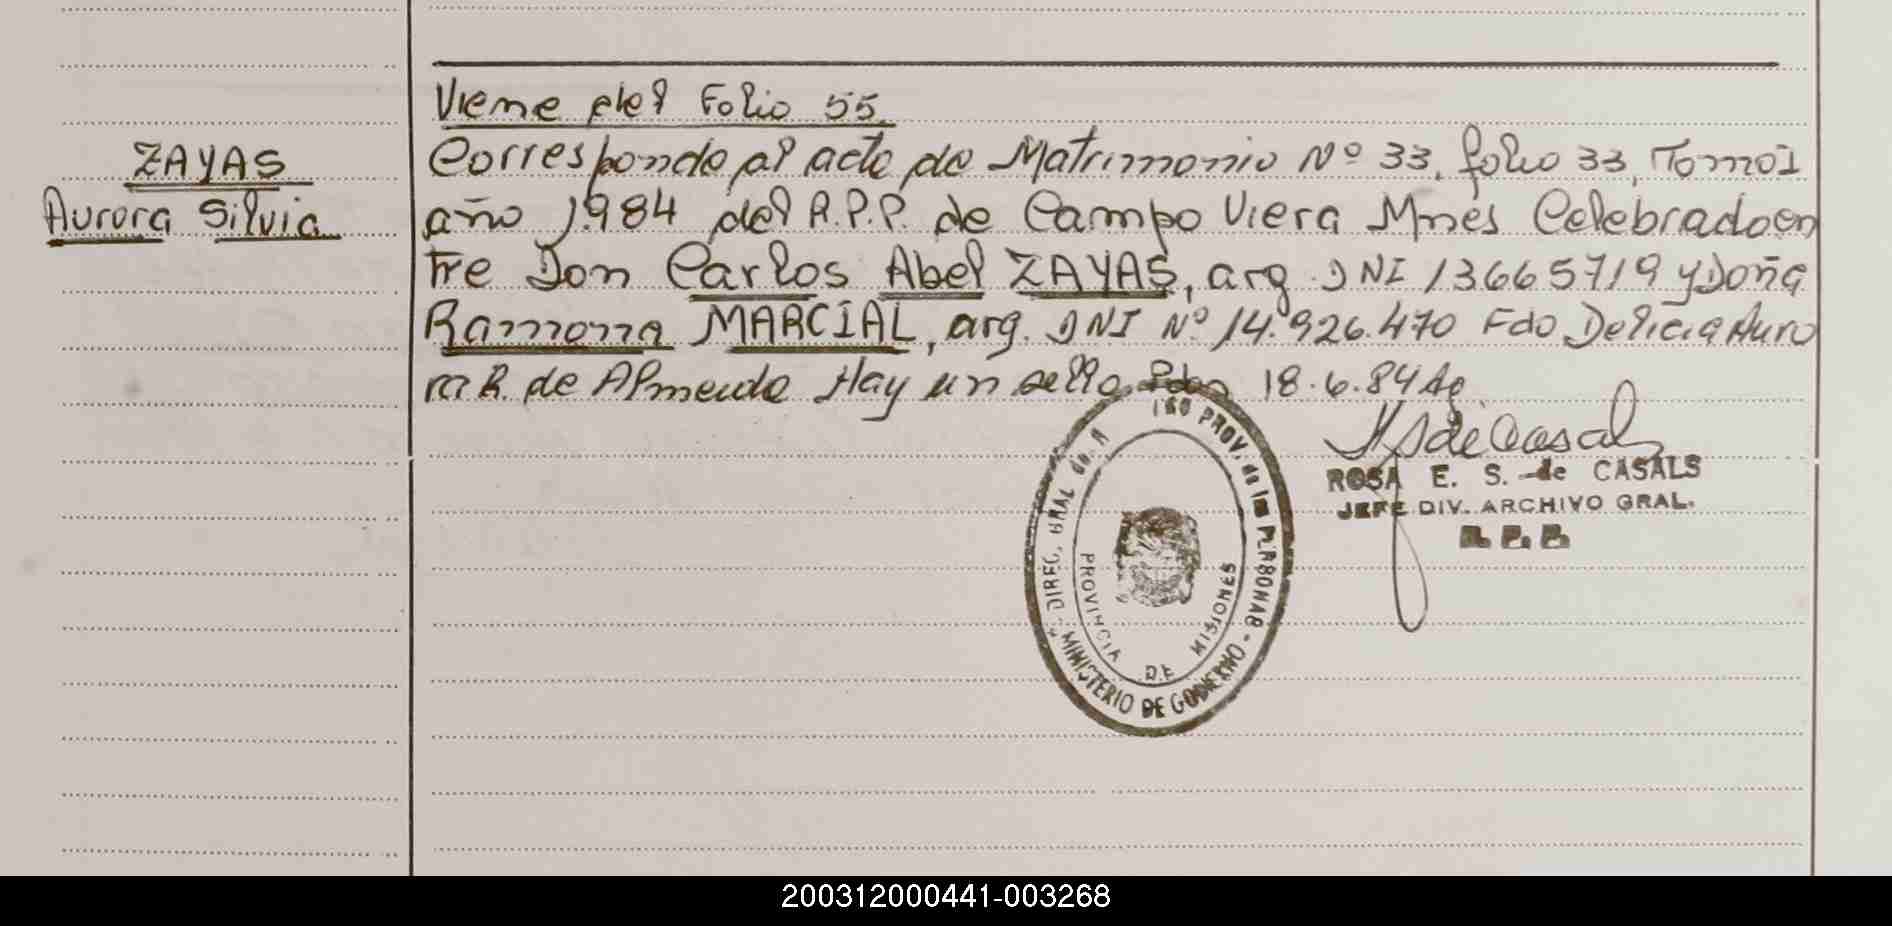 Viene del Folio 55
ZAYAS
Aurora Silvia
Corresponde al acta de Matrimonio Nº 33, folio 33, Tomo I
año 1.984 del R.P.P. de Campo Viera Mnes Celebrado en
tre Don Carlos Abel ZAYAS, arg. DNI 13665719 y Doña
Ramona MARCIAL, arg. DNI Nº 14.926.470 Fdo Delicia Auro
ra R. de Almeida Hay un sello 18.6.84
ROSA E. S. de CASALS
JEFE DIV. ARCHIVO GRAL.
R. P. P.
DIREC. GRAL de PROV. de las PERSONAS - MINISTERIO DE GOBIERNO
PROVINCIA DE MISIONES
200312000441-003268